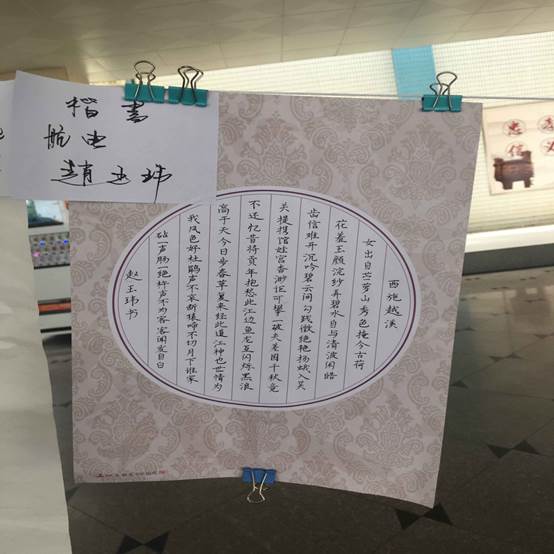 楷書
航电
趙玉玮
西施越溪
女出自苎萝山秀色掩今古荷
花羞玉颜浣纱弄碧水自与清波闲皓
齿信难开沉吟碧云间勾践徵绝艳扬蛾入吴
关提携馆娃宫杳渺讵可攀一破夫差国千秋竟
不还忆昔持贡年抱愁此江边鱼龙互闪烁黑浪
高于天今日步春草复来经此道江神也世情为
我风色好杜鹃声不哀断猿啼不切月下谁家
砧一声肠一绝杵声不为客客闻发自白
赵玉玮书
忠
信
义